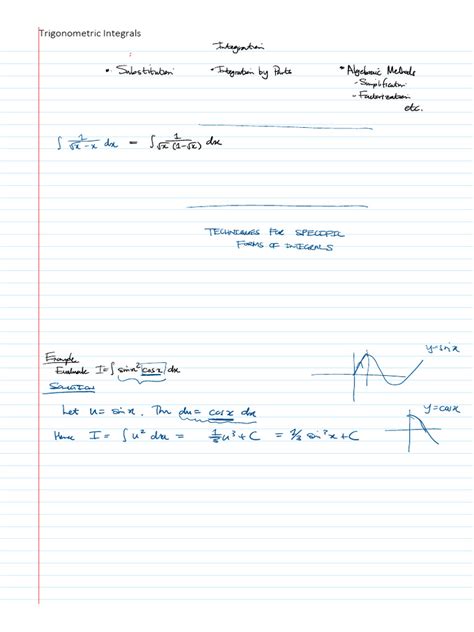 Trigonometric Integrals
Integration
• Substitution • Integration by Parts • Algebraic Methods
- Simplification
- Factorization
etc.
∫ 1/(√x - x) dx = ∫ 1/(√x (1-√x)) dx
TECHNIQUES FOR SPECIFIC
FORMS OF INTEGRALS
Example
Evaluate I = ∫ sin² x cos x dx
y = sin x
Solution
Let u = sin x. Then du = cos x dx
y = cos x
Hence I = ∫ u² du = 1/3 u³ + C = 1/3 sin³ x + C